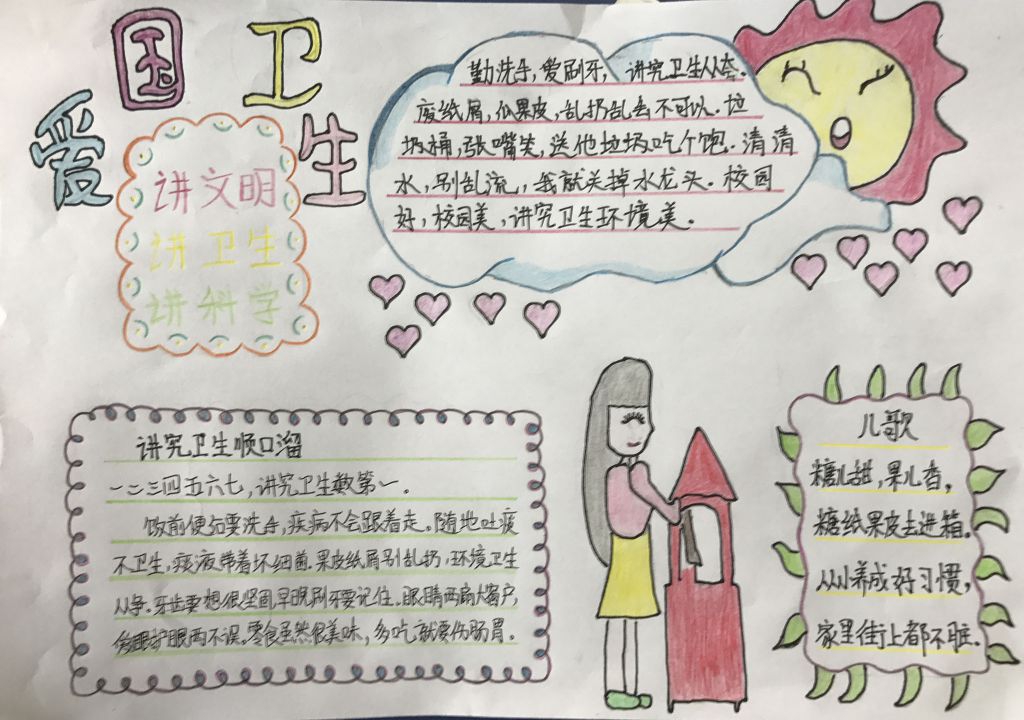 爱国卫生
讲文明
讲卫生
讲科学
勤洗手,爱刷牙,讲究卫生从冬.
废纸屑,瓜果皮,乱扔乱丢不可以.垃
圾桶,张嘴笑,送他垃圾吃个饱.清清
水,别乱流,我就关掉水龙头.校园
好,校园美,讲究卫生环境美.
讲究卫生顺口溜
一二三四五六七,讲究卫生数第一.
饭前便后要洗手,疾病不会跟着走.随地吐痰
不卫生,痰液带着坏细菌.果皮纸屑别乱扔,环境卫生
从争.牙齿要想很坚固,早晚刷牙要记住.眼睛两扇大窗户,
眼护眼两不误.零食虽然很美味,多吃就要伤肠胃.
儿歌
糖儿甜,果儿香,
糖纸果皮去进箱.
从小养成好习惯,
家里街上都不脏.